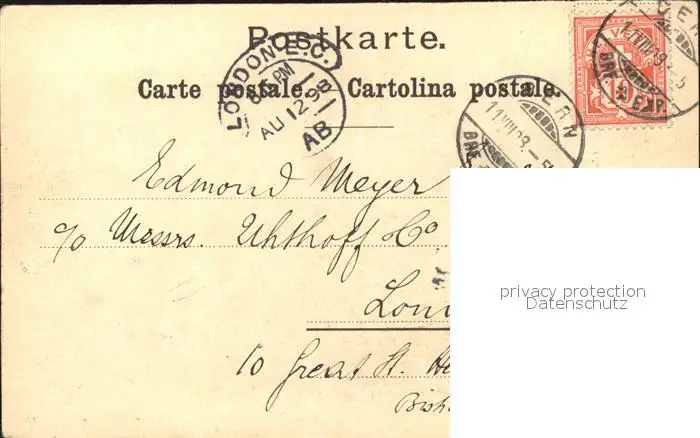 Postkarte.
Carte postale. — Cartolina postale.
LONDON E.C.
PM
AU 12 98
AB
BERN
11 VIII 98
BRF. EXP.
HELVETIA
Edmond Meyer
c/o Messrs. Uhthoff & Co
10 Great St. He
Bish
privacy protection
Datenschutz